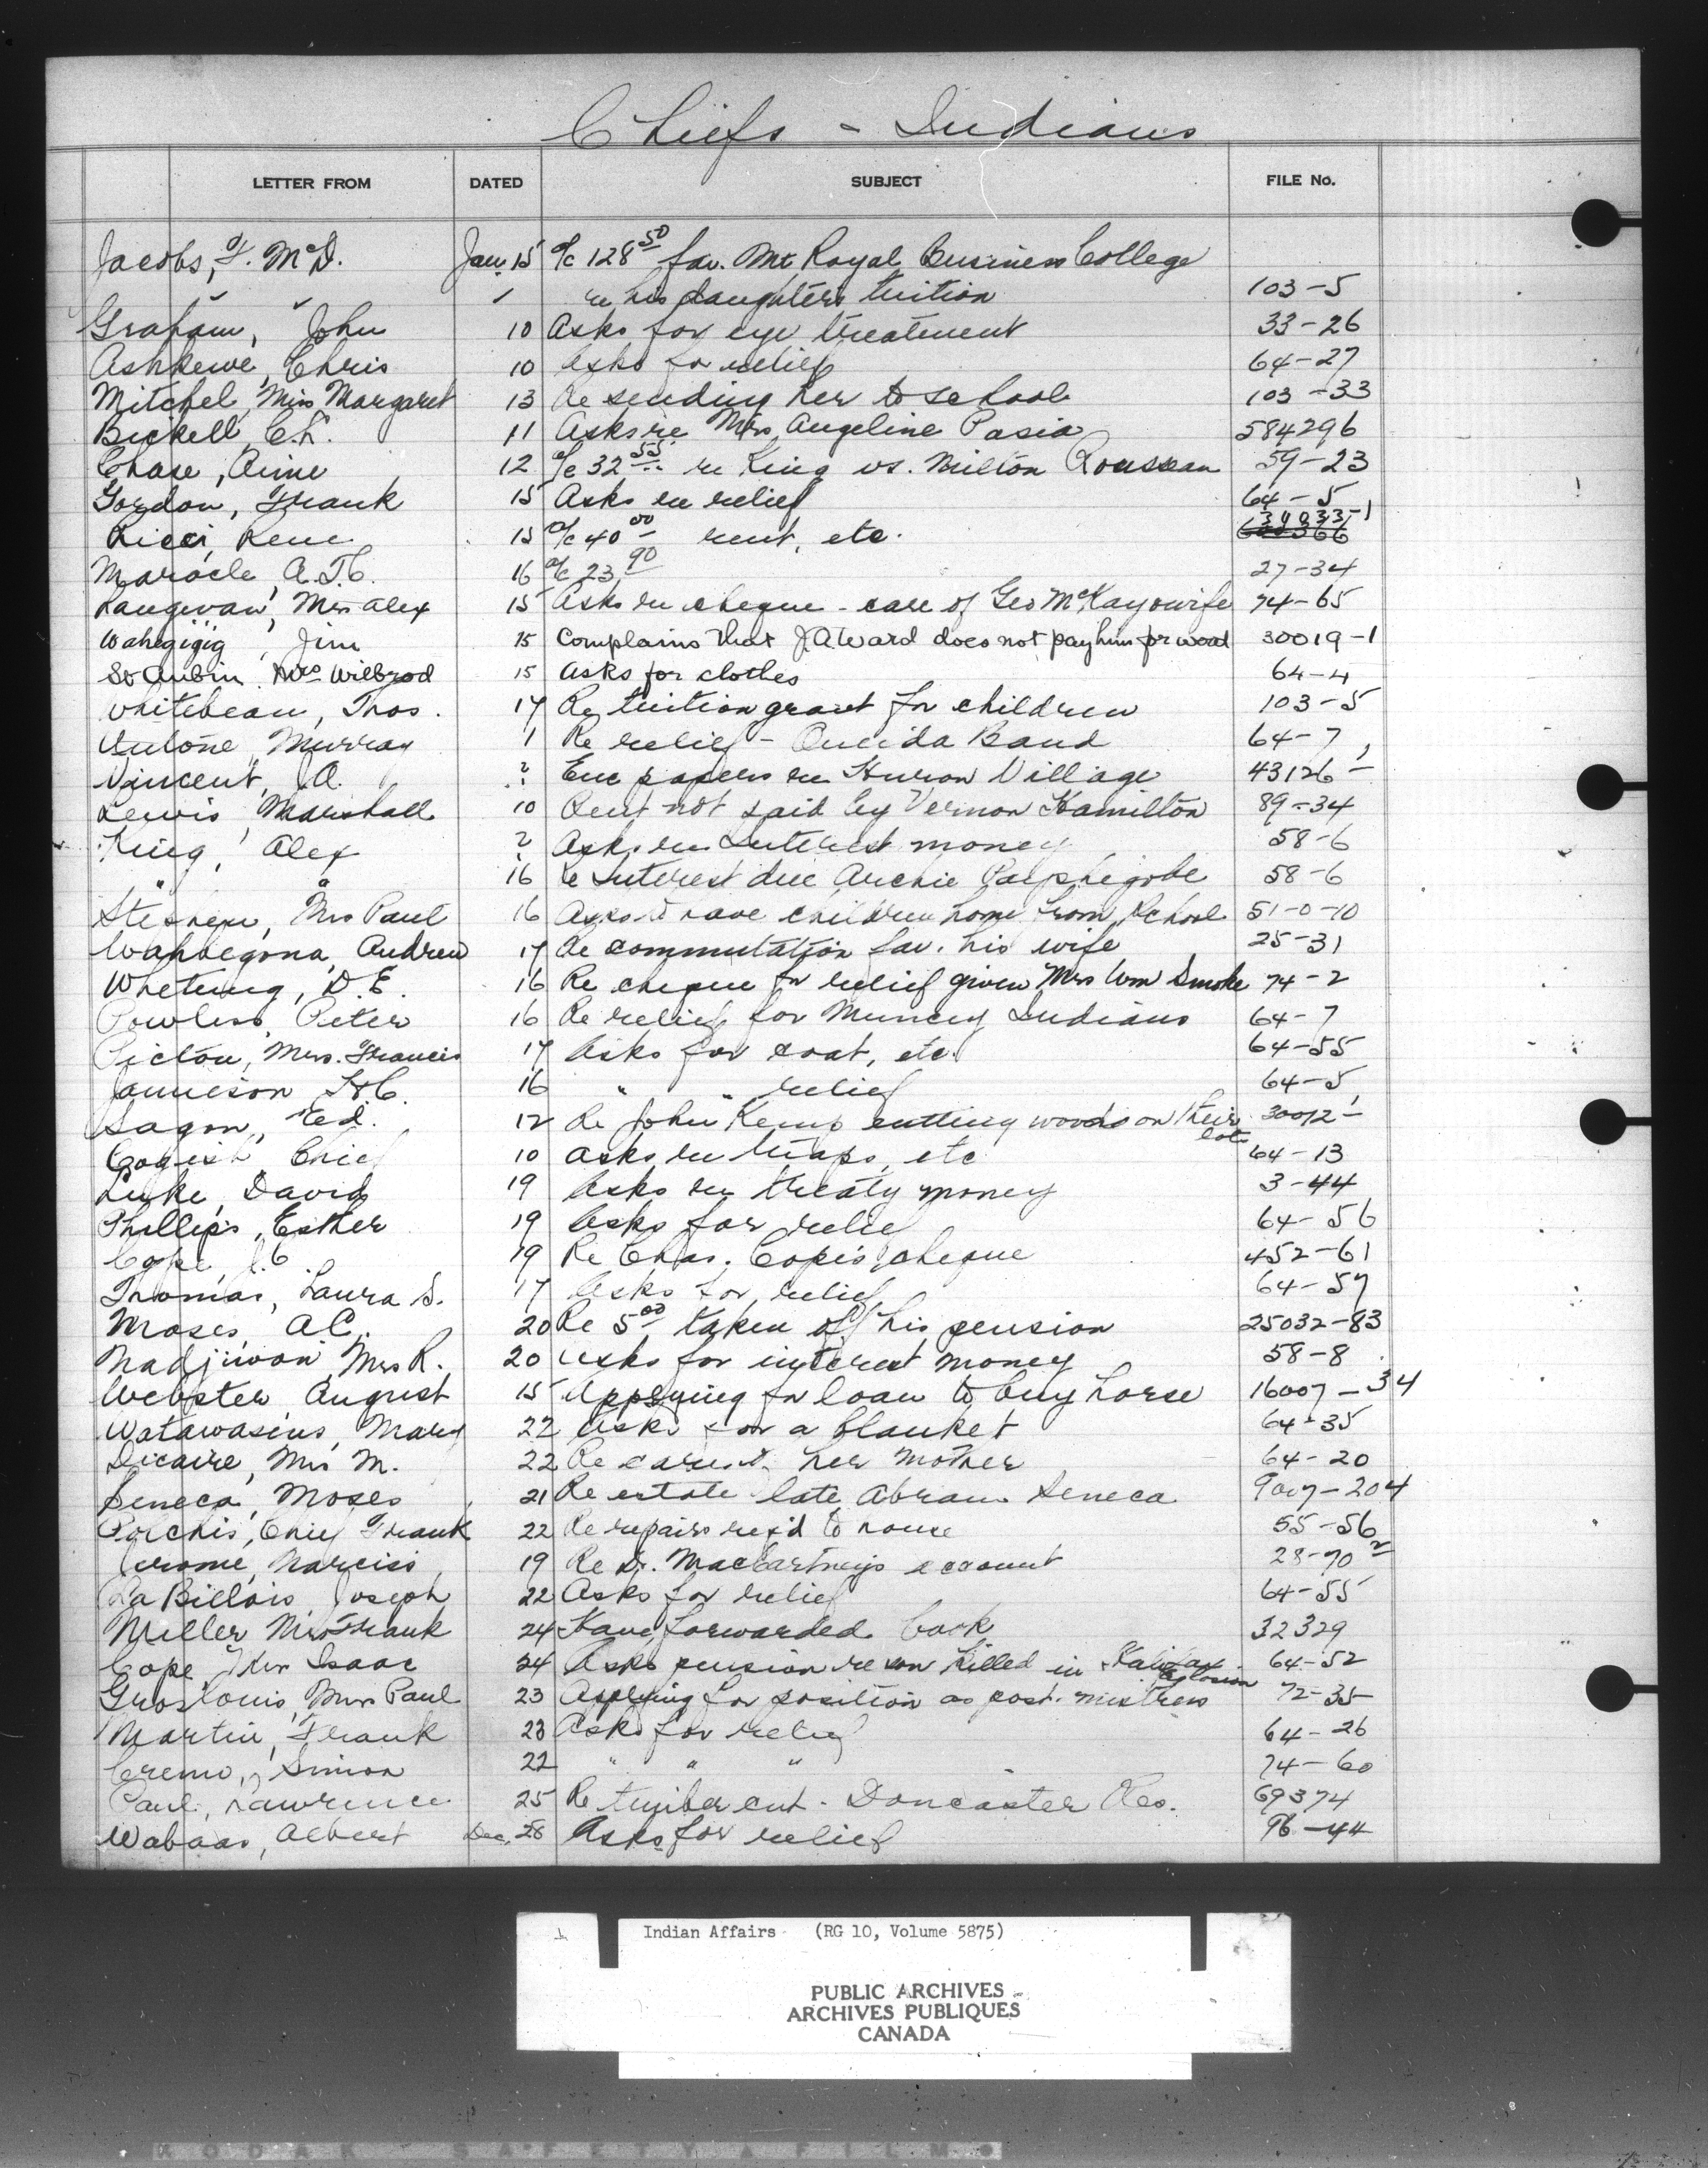 Chiefs - Indians
LETTER FROM DATED SUBJECT FILE No.
Jacobs, F. McD. Jan. 15 a/c 128 50 fav. Mt Royal Business College
" " ✓ re his daughters tuition 103-5
Graham, John 10 Asks for eye treatment 33-26
Ashkewe, Chris 10 Asks for relief 64-27
Mitchel, Miss Margaret 13 Re sending her to school 103-33
Bickell, C.L. 11 Asks re Mrs Angeline Pasia 584296
Chase, Aime 12 a/c 32 55 re King vs. Milton Rousseau 59-23
Gordon, Frank 15 Asks re relief 64-5
Ricci, Rene 15 a/c 40 00 rent, etc. 39033-1
Maracle, A.T.C. 16 a/c 23 90 27-34
Mrs Alex 15 Asks re cheque - care of Geo McKay & wife 74-65
Wahegigig, Jim 15 Complains that J.A. Ward does not pay him for wood 30019-1
St Aubin, Mrs Wilbrod 15 Asks for clothes 64-4
Whitebean, Thos. 17 Re tuition grant for children 103-5
Antone, Murray 1 Re relief - Oneida Band 64-7
Vincent, J.A. ? Enc papers re Huron Village 43126-
Lewis, Marshall 10 Rent not paid by Vernon Hamilton 89-34
King, Alex ? Asks re Interest money 58-6
" " 16 Re Interest due Archie 58-6
Stephen, Mrs Paul 16 Asks to have children home from School 51-0-10
Wahbegona, Andrew 17 Re commutation fav. his wife 25-31
Whetung, D.E. 16 Re cheque for relief given Mrs Wm Smoke 74-2
Powless, Peter 16 Re relief for Muncey Indians 64-7
Picton, Mrs. Francis 17 Asks for coat, etc. 64-55
Jamieson, H.C. 16 " " relief 64-5
Sagon, Ed. 12 Re John Kemp cutting woods on their lot 30012-
Chief 10 Asks re traps, etc 64-13
Luke, David 19 Asks re treaty money 3-44
Phillips, Esther 19 Asks for relief 64-56
Cope, J.C. 19 Re Chas. Cope's cheque 452-61
Thomas, Laura S. 17 Asks for relief 64-57
Moses, A.C. 20 Re 5 00 taken off his pension 25032-83
Nadjiwon, Mrs R. 20 Asks for interest money 58-8
Webster, August 15 Applying for loan to buy horse 16007-34
Watawasins, Mary 22 Asks for a blanket 64-35
Dicaire, Mrs M. 22 Re care of her mother 64-20
Seneca, Moses 21 Re estate late Abram Seneca 9007-204
Polchis, Chief Frank 22 Re repairs req'd to house 55-56
Jerome, Narciss 19 Re Dr. MacCartney's account 28-70 2
LaBillois, Joseph 22 Asks for relief 64-55
Miller, Mrs Frank 24 Have forwarded book 32329
Cope, Mrs Isaac 24 Asks pension re son killed in Halifax Explosion 64-52
Groslouis, Mrs Paul 23 Applying for position as post-mistress 72-35
Martin, Frank 23 Asks for relief 64-26
Cremo, Simon 22 " " " 74-60
Paul, Lawrence 25 Re timber cut - Doncaster Res. 69374
Wabaas, Albert Dec. 28 Asks for relief 96-44
1 Indian Affairs (RG 10, Volume 5875)
PUBLIC ARCHIVES
ARCHIVES PUBLIQUES
CANADA
KODAK SAFETY A FILM